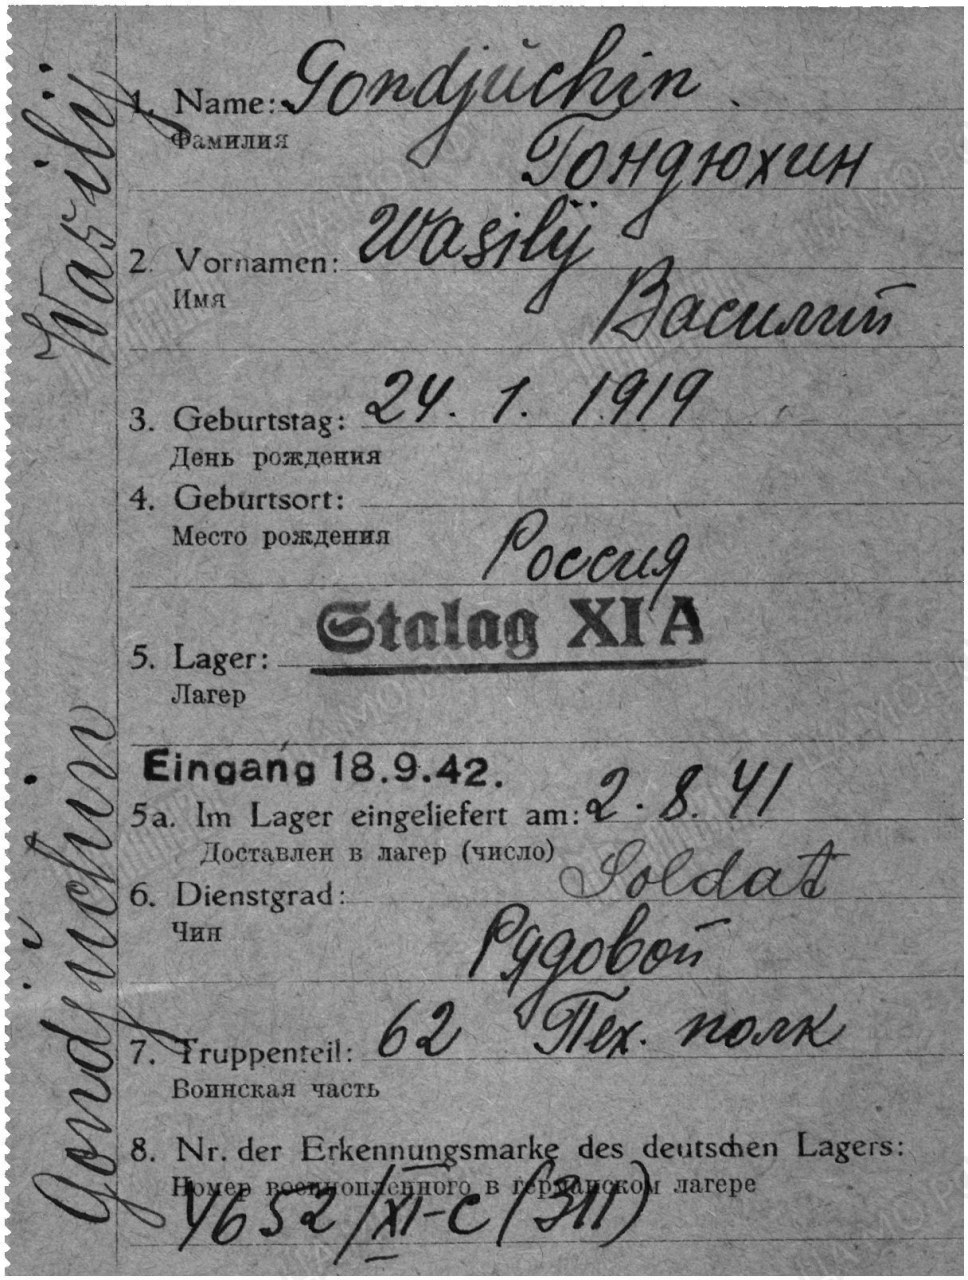 Gondjuchin Wasilij
1. Name: Gondjŭchin
Фамилия
Гондюхин
2. Vornamen: Wasilij
Имя
Василий
3. Geburtstag: 24. 1. 1919
День рождения
4. Geburtsort:
Место рождения
Россия
Stalag XI A
5. Lager:
Лагер
Eingang 18.9.42.
5a. Im Lager eingeliefert am: 2. 8. 41
Доставлен в лагер (число)
6. Dienstgrad: Soldat
Чин
Рядовой
7. Truppenteil: 62 Пех. полк
Воинская часть
8. Nr. der Erkennungsmarke des deutschen Lagers:
Номер военнопленного в германском лагере
4652/XI-C (311)